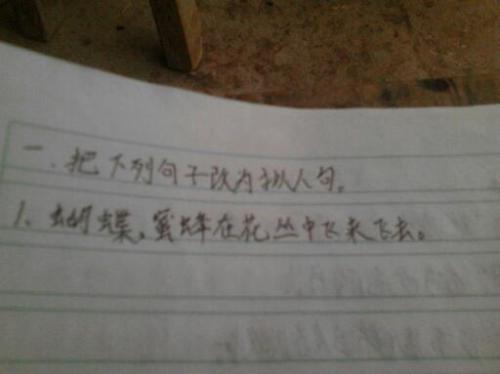 一.把下列句子改为拟人句。
1、蝴蝶,蜜蜂在花丛中飞来飞去。